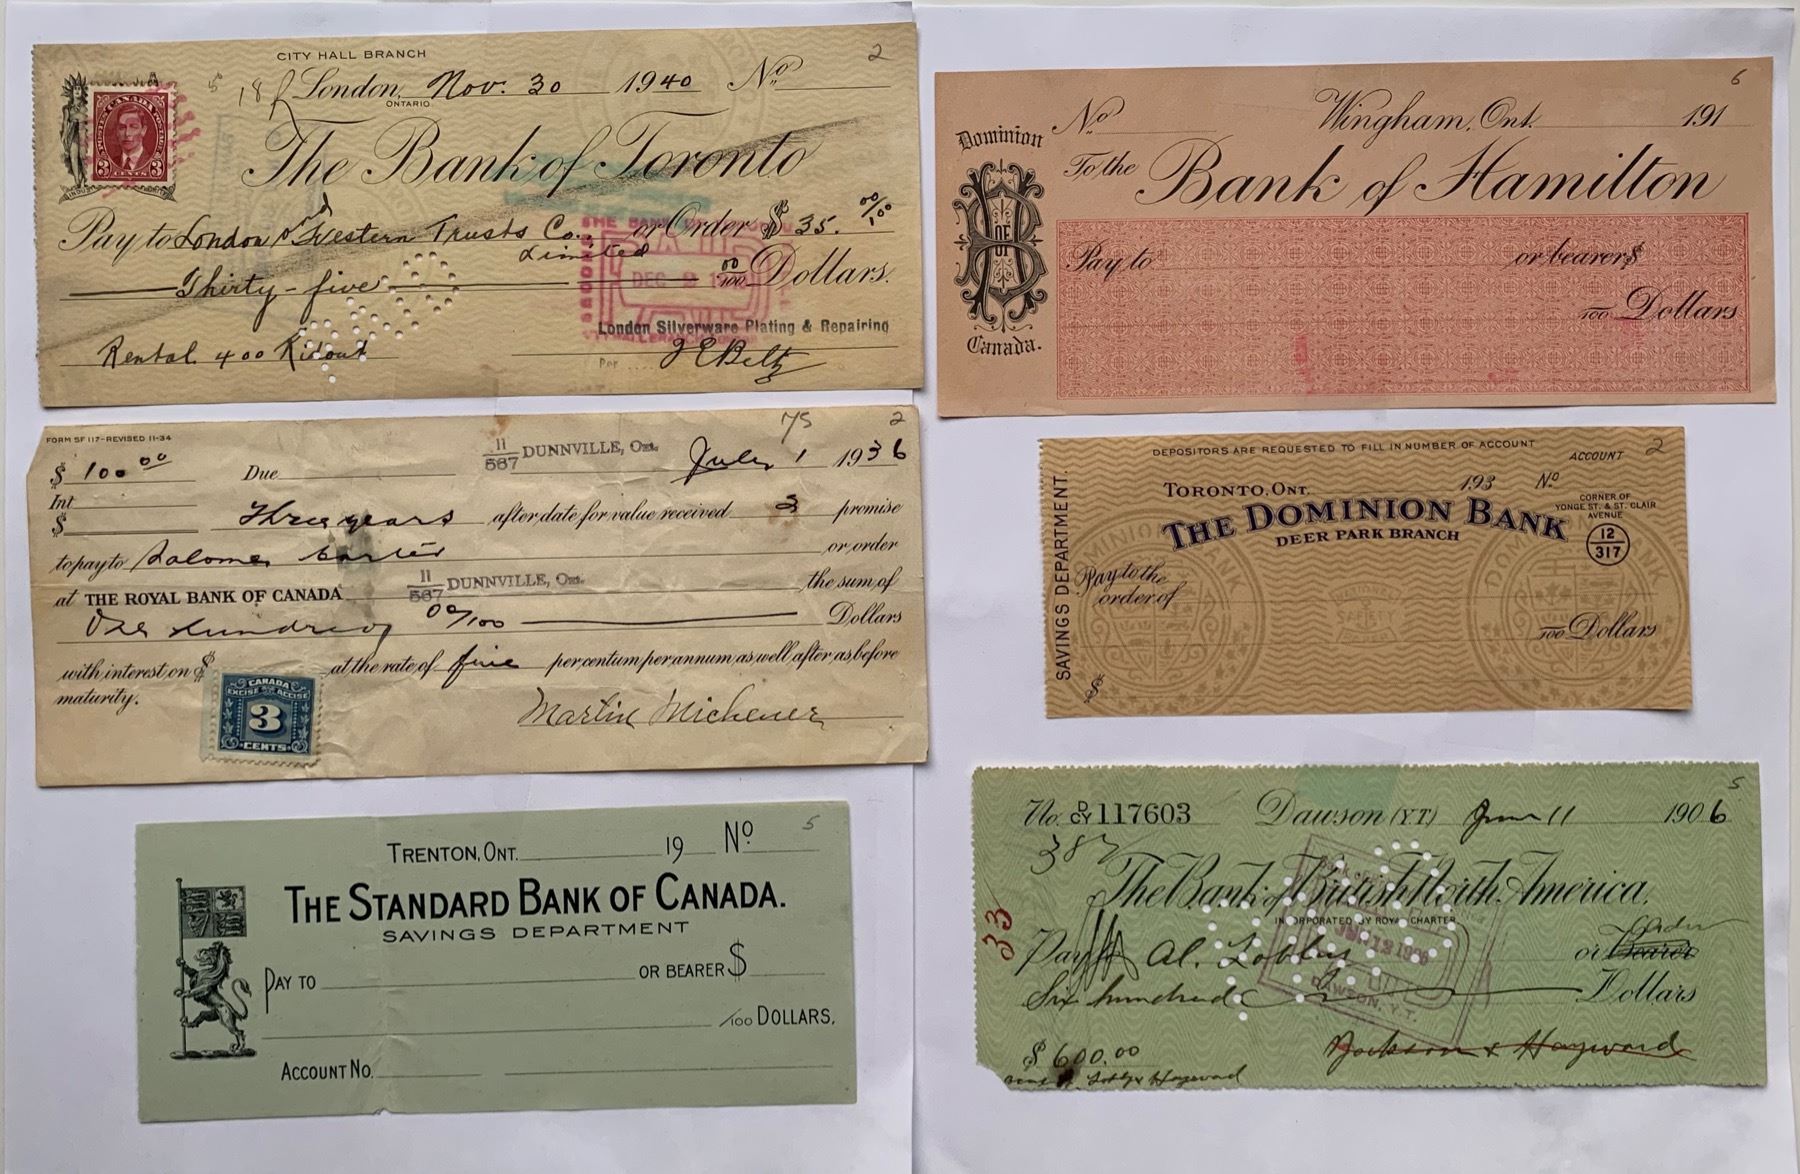 CITY HALL BRANCH
2
5
18
London, Nov. 30 1940 No
ONTARIO
CANADA
POSTES POSTAGE
3 CENTS 3
The Bank of Toronto
Pay to London and Western Trusts Co. or Order $ 35. 00/100
Limited
Thirty-five 00/100 Dollars.
THE BANK
PAID
DEC
London Silverware Plating & Repairing
Rental 400 Ridout
Per J E Beltz
FORM SF 117-REVISED 11-34
75
2
$ 100 00 Due 11/567 DUNNVILLE, Ont. July 1 1936
Int
$
Three years after date for value received 3 promise
to pay to Salome or order
at THE ROYAL BANK OF CANADA 11/567 DUNNVILLE, Ont. the sum of
One hundred 00/100 Dollars
with interest on $ at the rate of five per centum per annum as well after as before
maturity.
CANADA
EXCISE ACCISE
3
CENTS
Martin Michener
5
TRENTON, ONT. 19 No
THE STANDARD BANK OF CANADA.
SAVINGS DEPARTMENT
PAY TO OR BEARER $
/100 DOLLARS.
ACCOUNT NO.
6
No Wingham, Ont. 191
Dominion
To the
Bank of Hamilton
B OF H
Pay to or bearer $
100 Dollars
Canada.
DEPOSITORS ARE REQUESTED TO FILL IN NUMBER OF ACCOUNT
ACCOUNT 2
SAVINGS DEPARTMENT.
TORONTO, ONT. 193 No
THE DOMINION BANK
CORNER OF
YONGE ST. & ST. CLAIR
AVENUE
DEER PARK BRANCH
12
317
Pay to the
order of
100 Dollars
$
5
No. D/CY 117603 Dawson (Y.T.) June 11 1906
387
The Bank of British North America.
INCORPORATED BY ROYAL CHARTER
33
Order
Pay Al. or Bearer
Six hundred Dollars
DAWSON, Y.T.
$ 600.00
Jackson & Hayward
Hayward